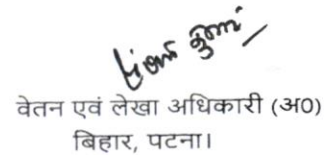 वेतन एवं लेखा अधिकारी (अ0)
बिहार, पटना।